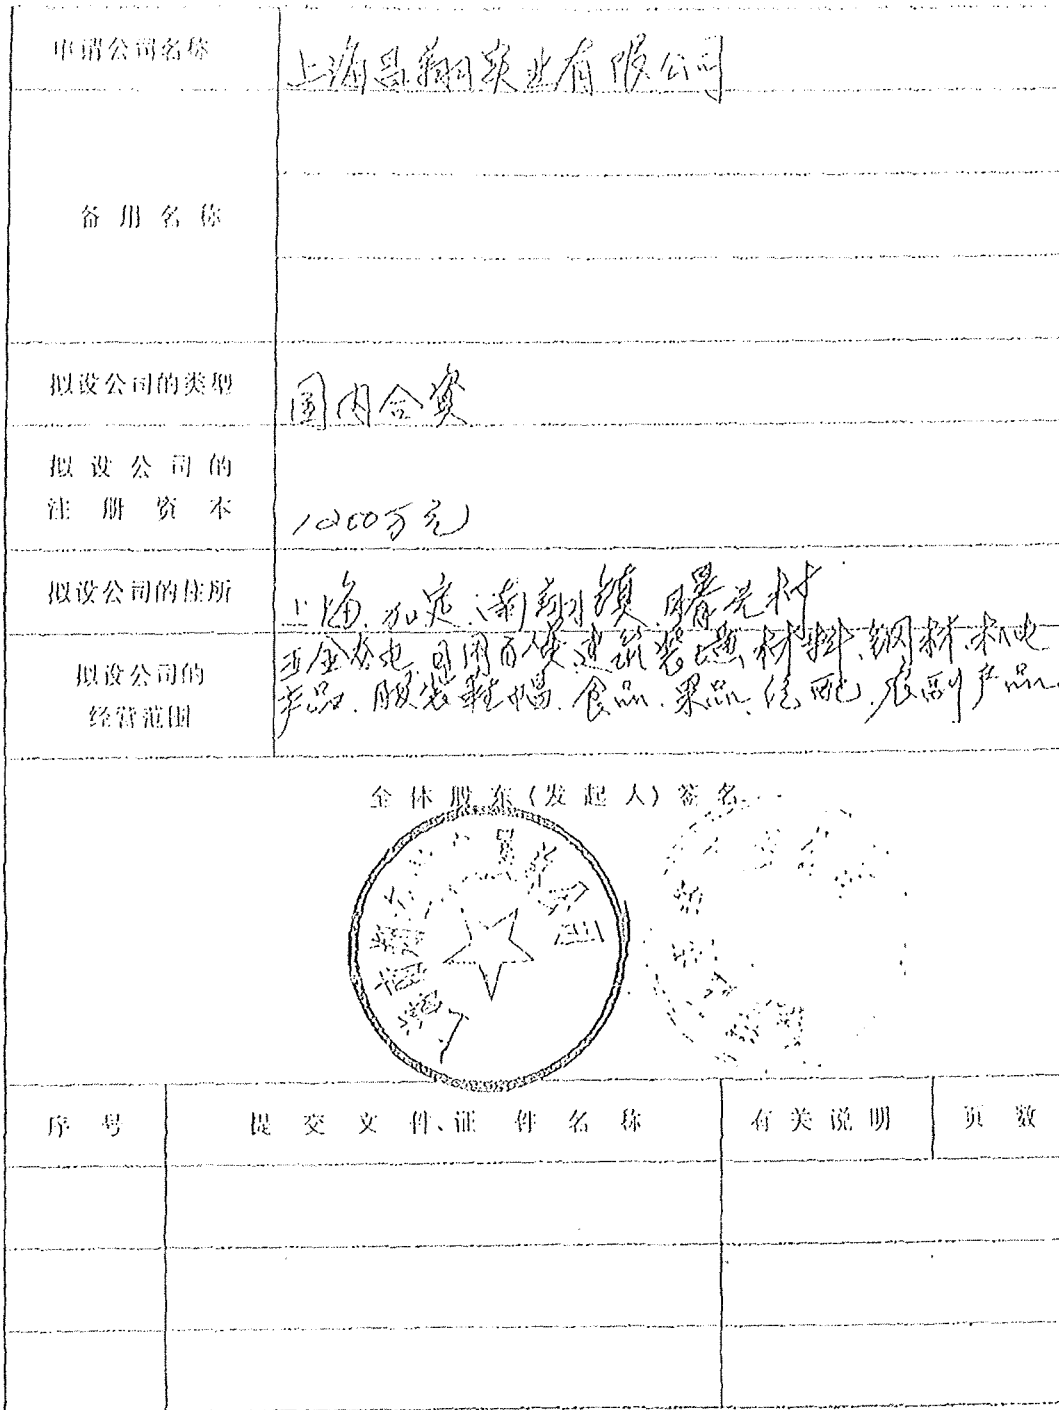 申请公司名称
上海昌翔实业有限公司
备用名称
拟设公司的类型
国内合资
拟设公司的
注册资本
1000万元
拟设公司的住所
上海.加定.南翔镇.曙光村
拟设公司的
经营范围
五金交电.日用百货.建筑装璜材料.钢材.机电
产品.服装鞋帽.食品.果品.

农副产品.
全体股东(发起人)签名
序号
提交文件、证件名称
有关说明
页数